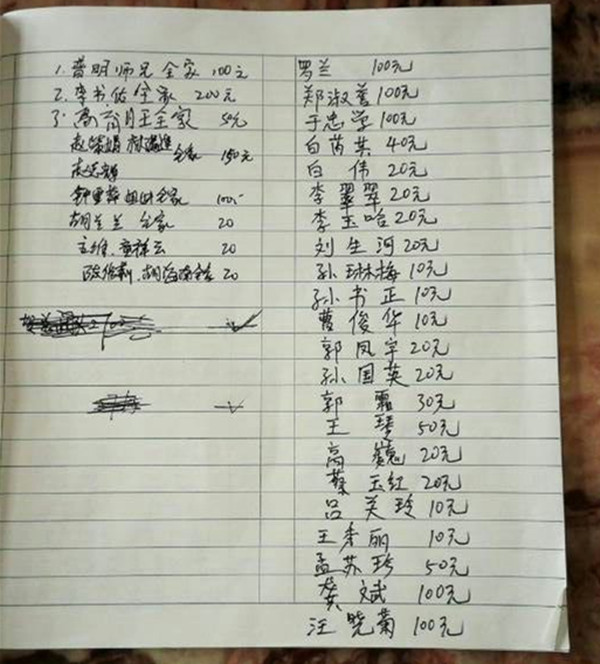 1. 普明师兄全家 100元
2. 李书佑全家 200元
3. 高 月玉全家 50元
全家 150元
全家 100.-
胡兰兰 全家 20
王维. 童祥云 20
全家 20
罗兰 100元
郑淑 100元
于志学 100元
白芮英 40元
白 伟 20元
李翠翠 20元
李玉哈 20元
刘生河 20元
孙琳梅 10元
孙书正 10元
曹俊华 10元
郭凤宇 20元
孙国英 20元
郭霜 30元
王琴 50元
高巍 20元
蔡玉红 20元
吕美玲 10元
王秀丽 10元
孟苏珍 50元
龚斌 100元
汪晓菊 100元